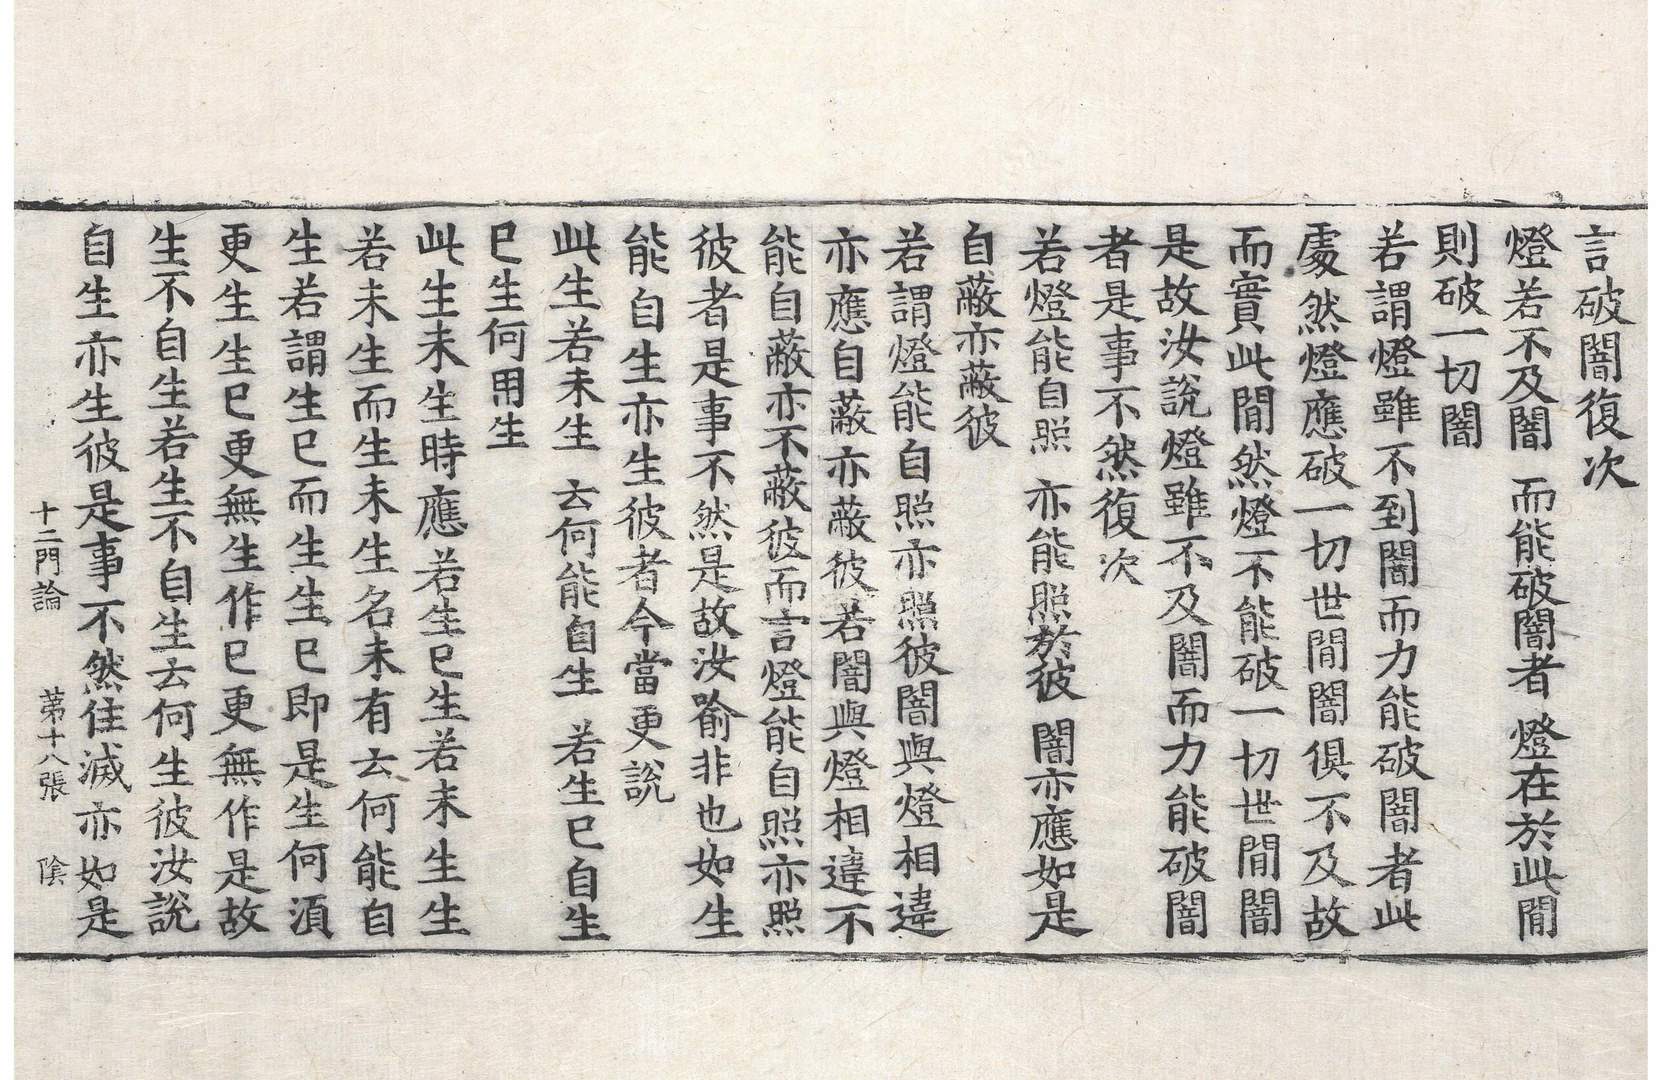 言破闇復次
燈若不及闇 而能破闇者 燈在於此間
則破一切闇
若謂燈雖不到闇而力能破闇者此
處然燈應破一切世間闇俱不及故
而實此間然燈不能破一切世間闇
是故汝說燈雖不及闇而力能破闇
者是事不然復次
若燈能自照 亦能照於彼 闇亦應如是
自蔽亦蔽彼
若謂燈能自照亦照彼闇與燈相違
亦應自蔽亦蔽彼若闇與燈相違不
能自蔽亦不蔽彼而言燈能自照亦照
彼者是事不然是故汝喻非也如生
能自生亦生彼者今當更說
此生若未生 云何能自生 若生已自生
已生何用生
此生未生時應若生已生若未生生
若未生而生未生名未有云何能自
生若謂生已而生生已即是生何須
更生生已更無生作已更無作是故
生不自生若生不自生云何生彼汝說
自生亦生彼是事不然住滅亦如是
十二門論 第十八張 陰